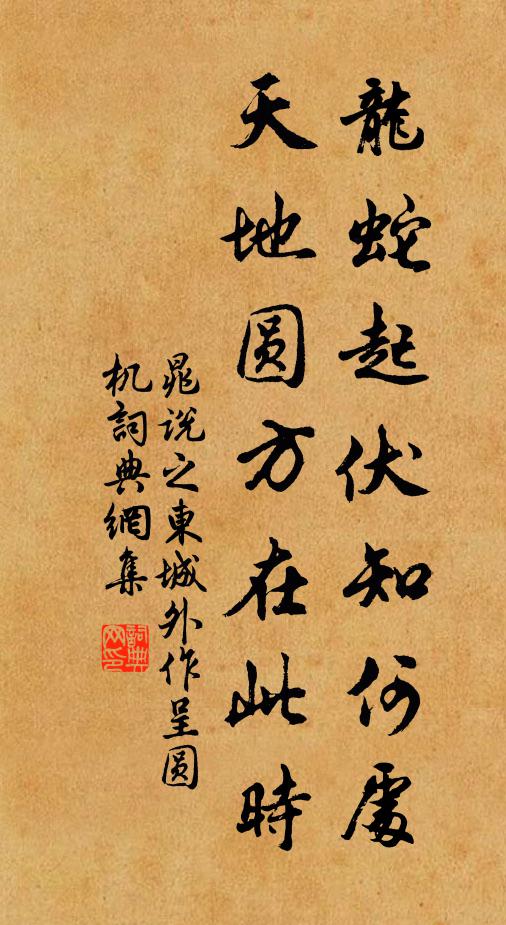 龍蛇起伏知何處
天地圆方在此時
晁说之東城外作呈圆
机詞典網集
詞典网印